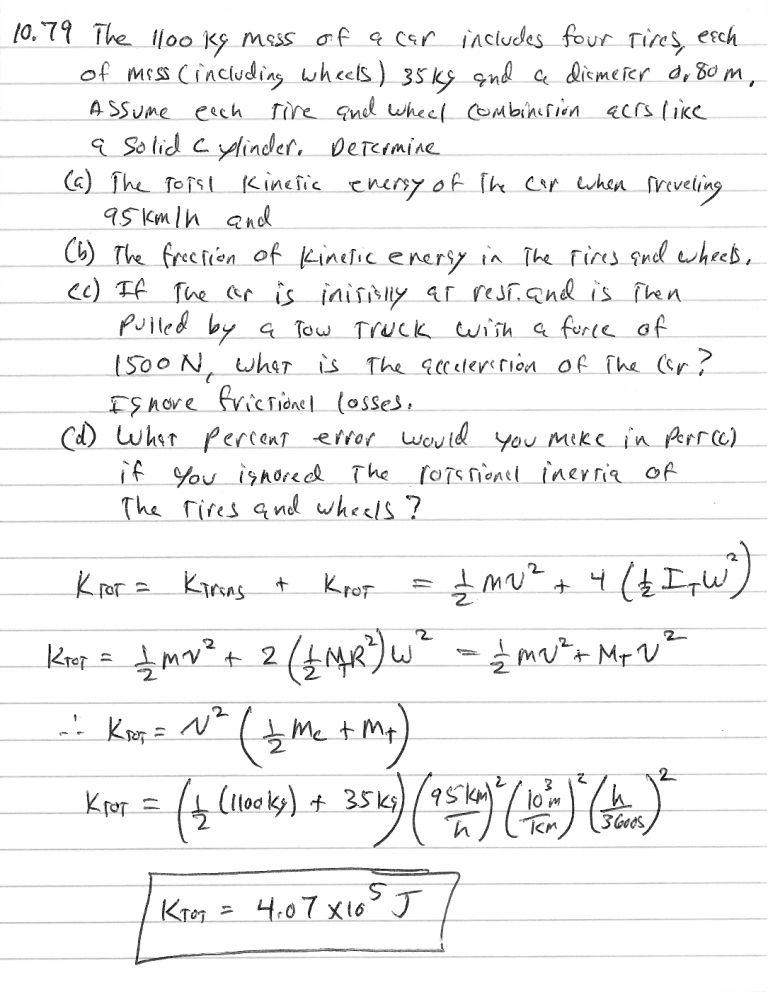 10.79 The 1100 kg mass of a car includes four Tires, each
of mass (including wheels) 35 kg and a diameter 0.80 m.
Assume each Tire and wheel combination acts like
a solid cylinder. Determine
(a) The Total Kinetic energy of The car when Traveling
95 km/h and
(b) The fraction of Kinetic energy in The Tires and wheels.
(c) If The car is initially at rest. and is Then
pulled by a Tow Truck with a force of
1500 N, what is The acceleration of The Car?
Ignore frictional losses.
(d) What percent error would you make in Part (c)
if you ignored The rotational inertia of
The Tires and wheels?
K_TOT = K_Trans + K_ROT = 1/2 mv² + 4 (1/2 I_T W²)
K_TOT = 1/2 mv² + 2 (1/2 M_T R²) W² = 1/2 mv² + M_T V²
∴ K_TOT = V² (1/2 M_C + M_T)
K_TOT = (1/2 (1100 kg) + 35 kg) (95 km/h)² (10³ m/km)² (h/3600s)²
K_TOT = 4.07 x10⁵ J